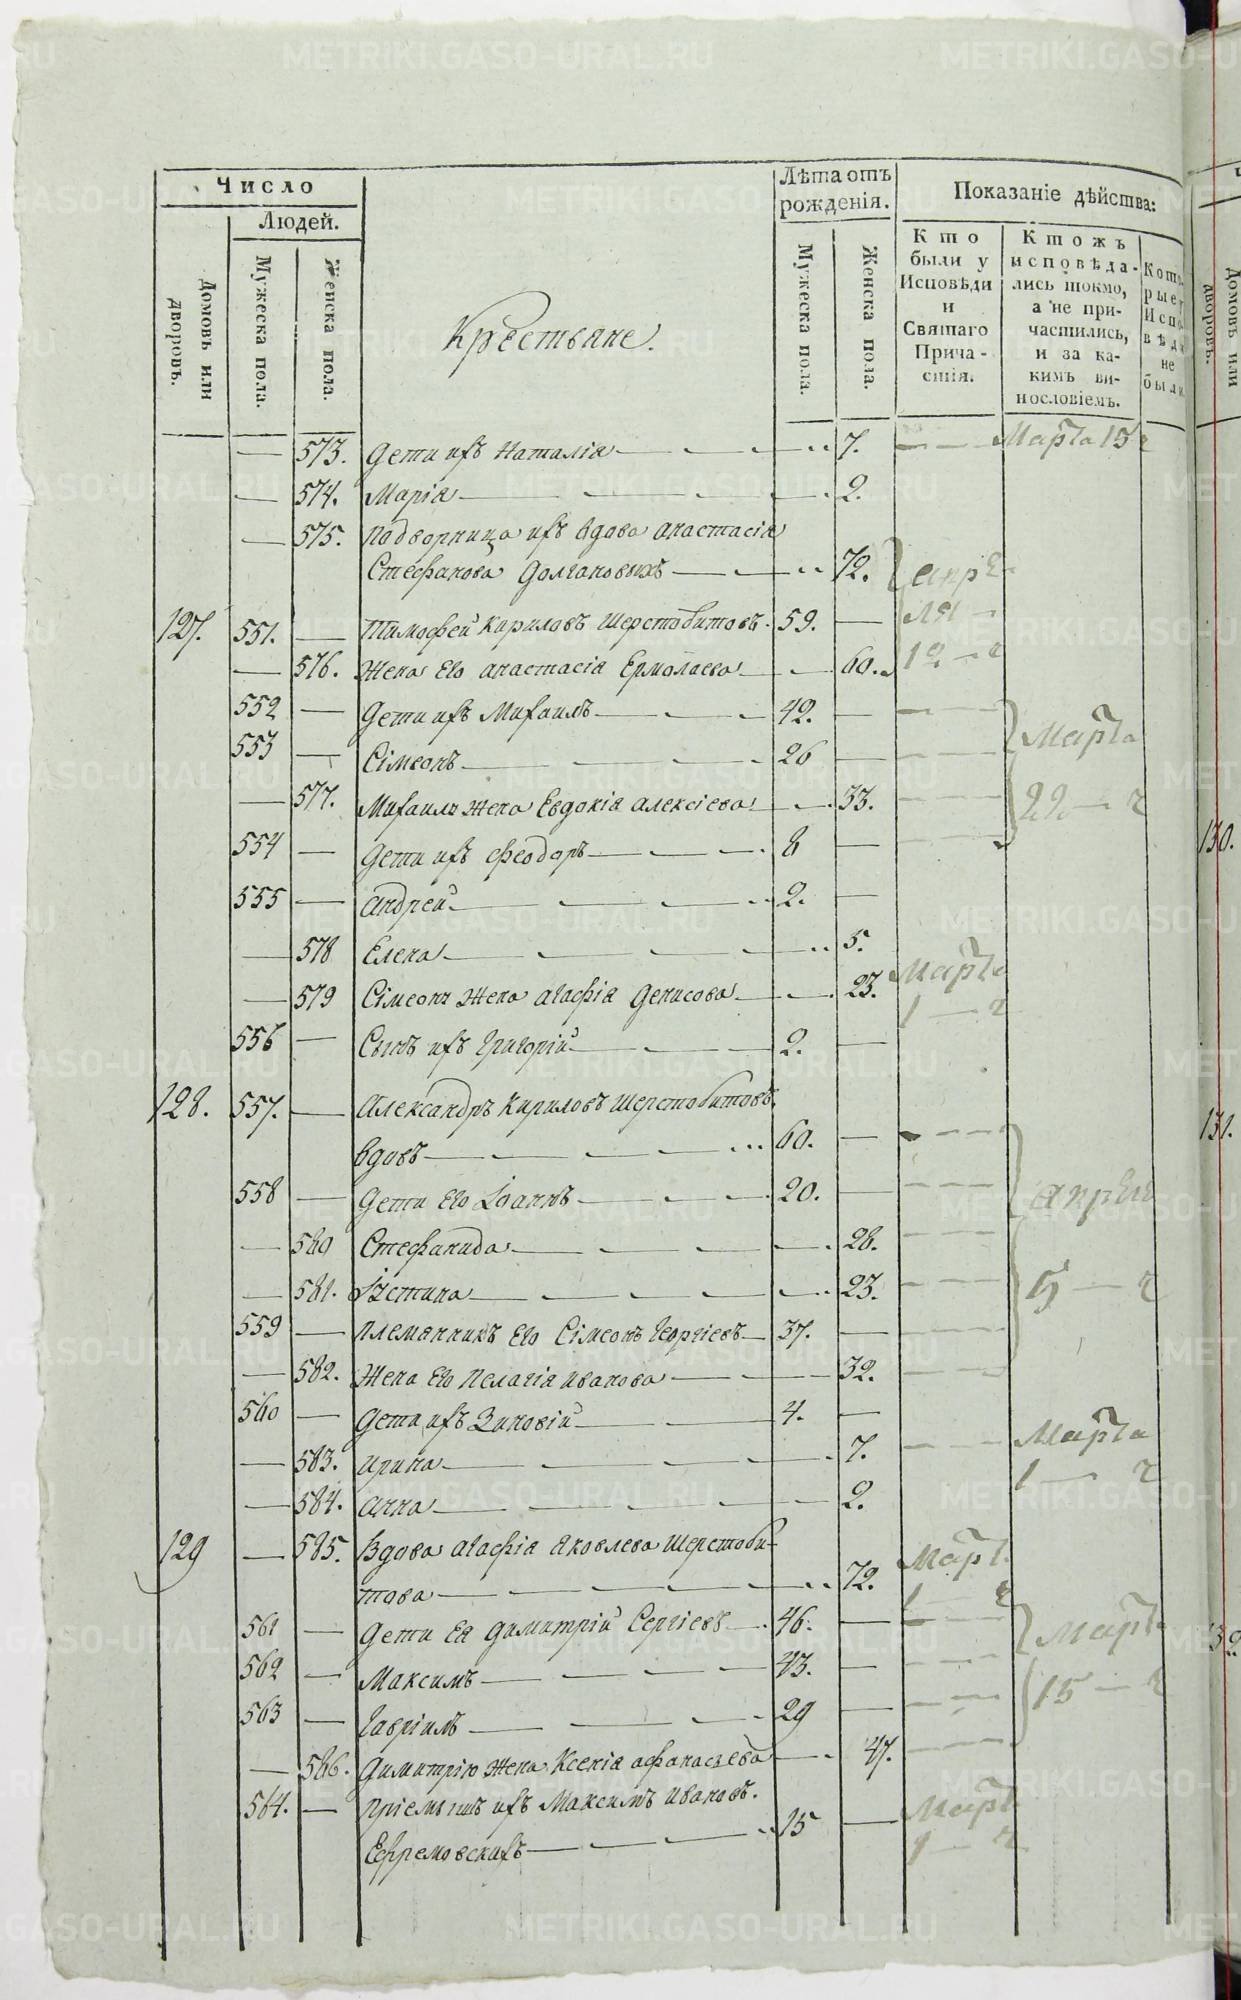 Число
Людей.
Домовъ или дворовъ.
Мужеска пола.
Женска пола.
Лѣта отъ рожденія.
Мужеска пола.
Женска пола.
Показаніе дѣйства:
Кто были у Исповѣди и Святаго Причастія.
Ктожъ исповѣдались токмо, а не причастились, и за какимъ винословіемъ.
Которые Исповѣди не были
Крестьяне.
573. Дети ихъ Наталія 7. Марта 15 ч
574. Марія 2.
575. Подворница ихъ вдова Анастасія
Стефанова Долгановыхъ 72. Апрѣ
ля
127. 551. Тимофей Кириловъ Шерстобитовъ 59.
576. Жена Его Анастасія Ермолаева 60. 12 ч
552 Дети ихъ Михаилъ 42.
Марта
553 Сімеонъ 26
577. Михаилъ жена Евдокія Алексіева 33. 22 ч
554 Дети ихъ Феодоръ 8
555 Андрей 2.
578 Елена 5.
Марта
579 Сімеонъ жена Агафія Денисова 23. 1 ч
556 Сынъ ихъ Григорій 2.
128. 557. Александръ Кириловъ Шерстобитовъ
вдовъ 60.
558 Дети Его Іоаннъ 20. Апрѣля
580 Стефанида 28.
581. Іустина 23. 5 ч
559 Племянникъ Его Сімеонъ Георгіевъ 37.
582. Жена Его Пелагія Иванова 32.
560 Дети ихъ Зиновій 4.
Марта
583. Ирина 7. 1 ч
584. Анна 2.
129 585. Вдова Агафія Яковлева Шерстоби-
това 72. Март 1 ч
561 Дети Ея Димитрій Сергіевъ 46. Март
562 Максимъ 43. 15 ч
563 Гавріилъ 29
586. Димитрію жена Ксенія Афанасьева 47.
564. Пріемышъ ихъ Максимъ Ивановъ. Март
Ефремовскихъ 15
130.
131.
METRIKI.GASO-URAL.RU